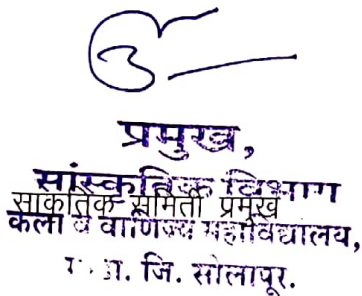 प्रमुख,
सांस्कृतिक विभाग
साकृतिक समिती प्रमुख
कला व वाणिज्य महाविद्यालय,
जि. सोलापूर.